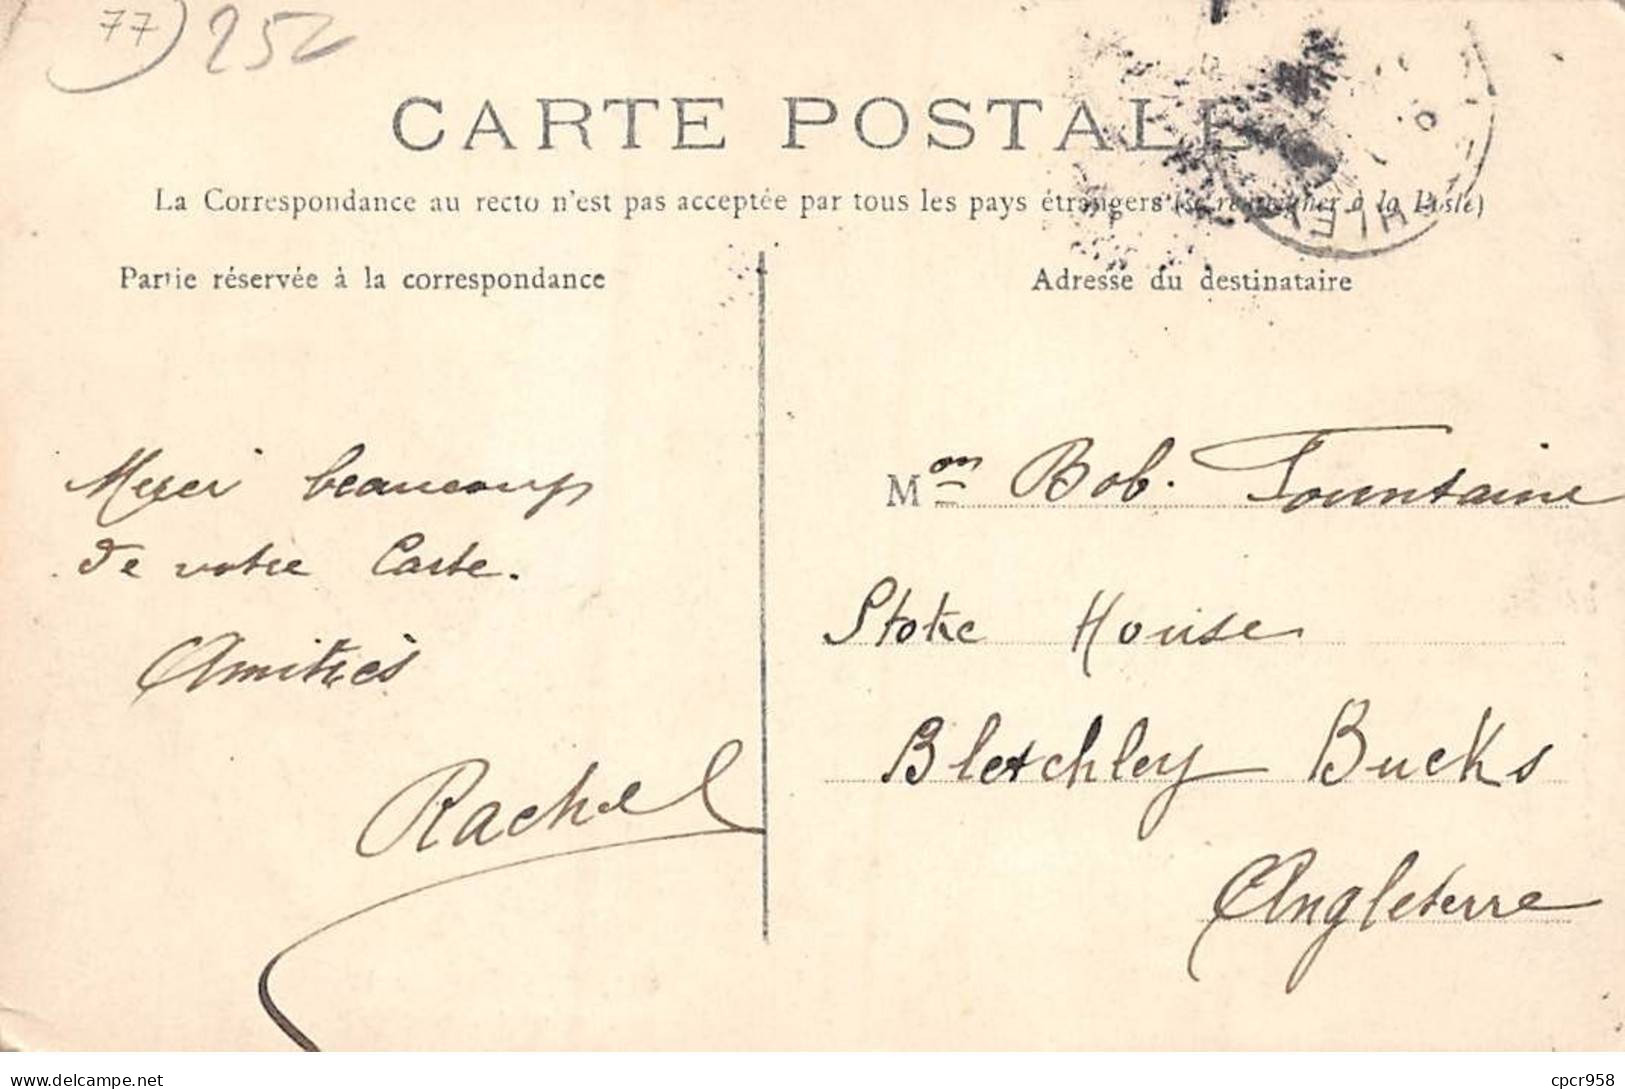 77 252
CARTE POSTALE
La Correspondance au recto n'est pas acceptée par tous les pays étrangers (se renseigner à la Poste)
Partie réservée à la correspondance
Adresse du destinataire
Merci beaucoup
de votre Carte.
Amitiés
Rachel
Mon Bob. Fountaine
Stoke House
Bletchley Bucks
Angleterre
delcampe.net
cpcr958